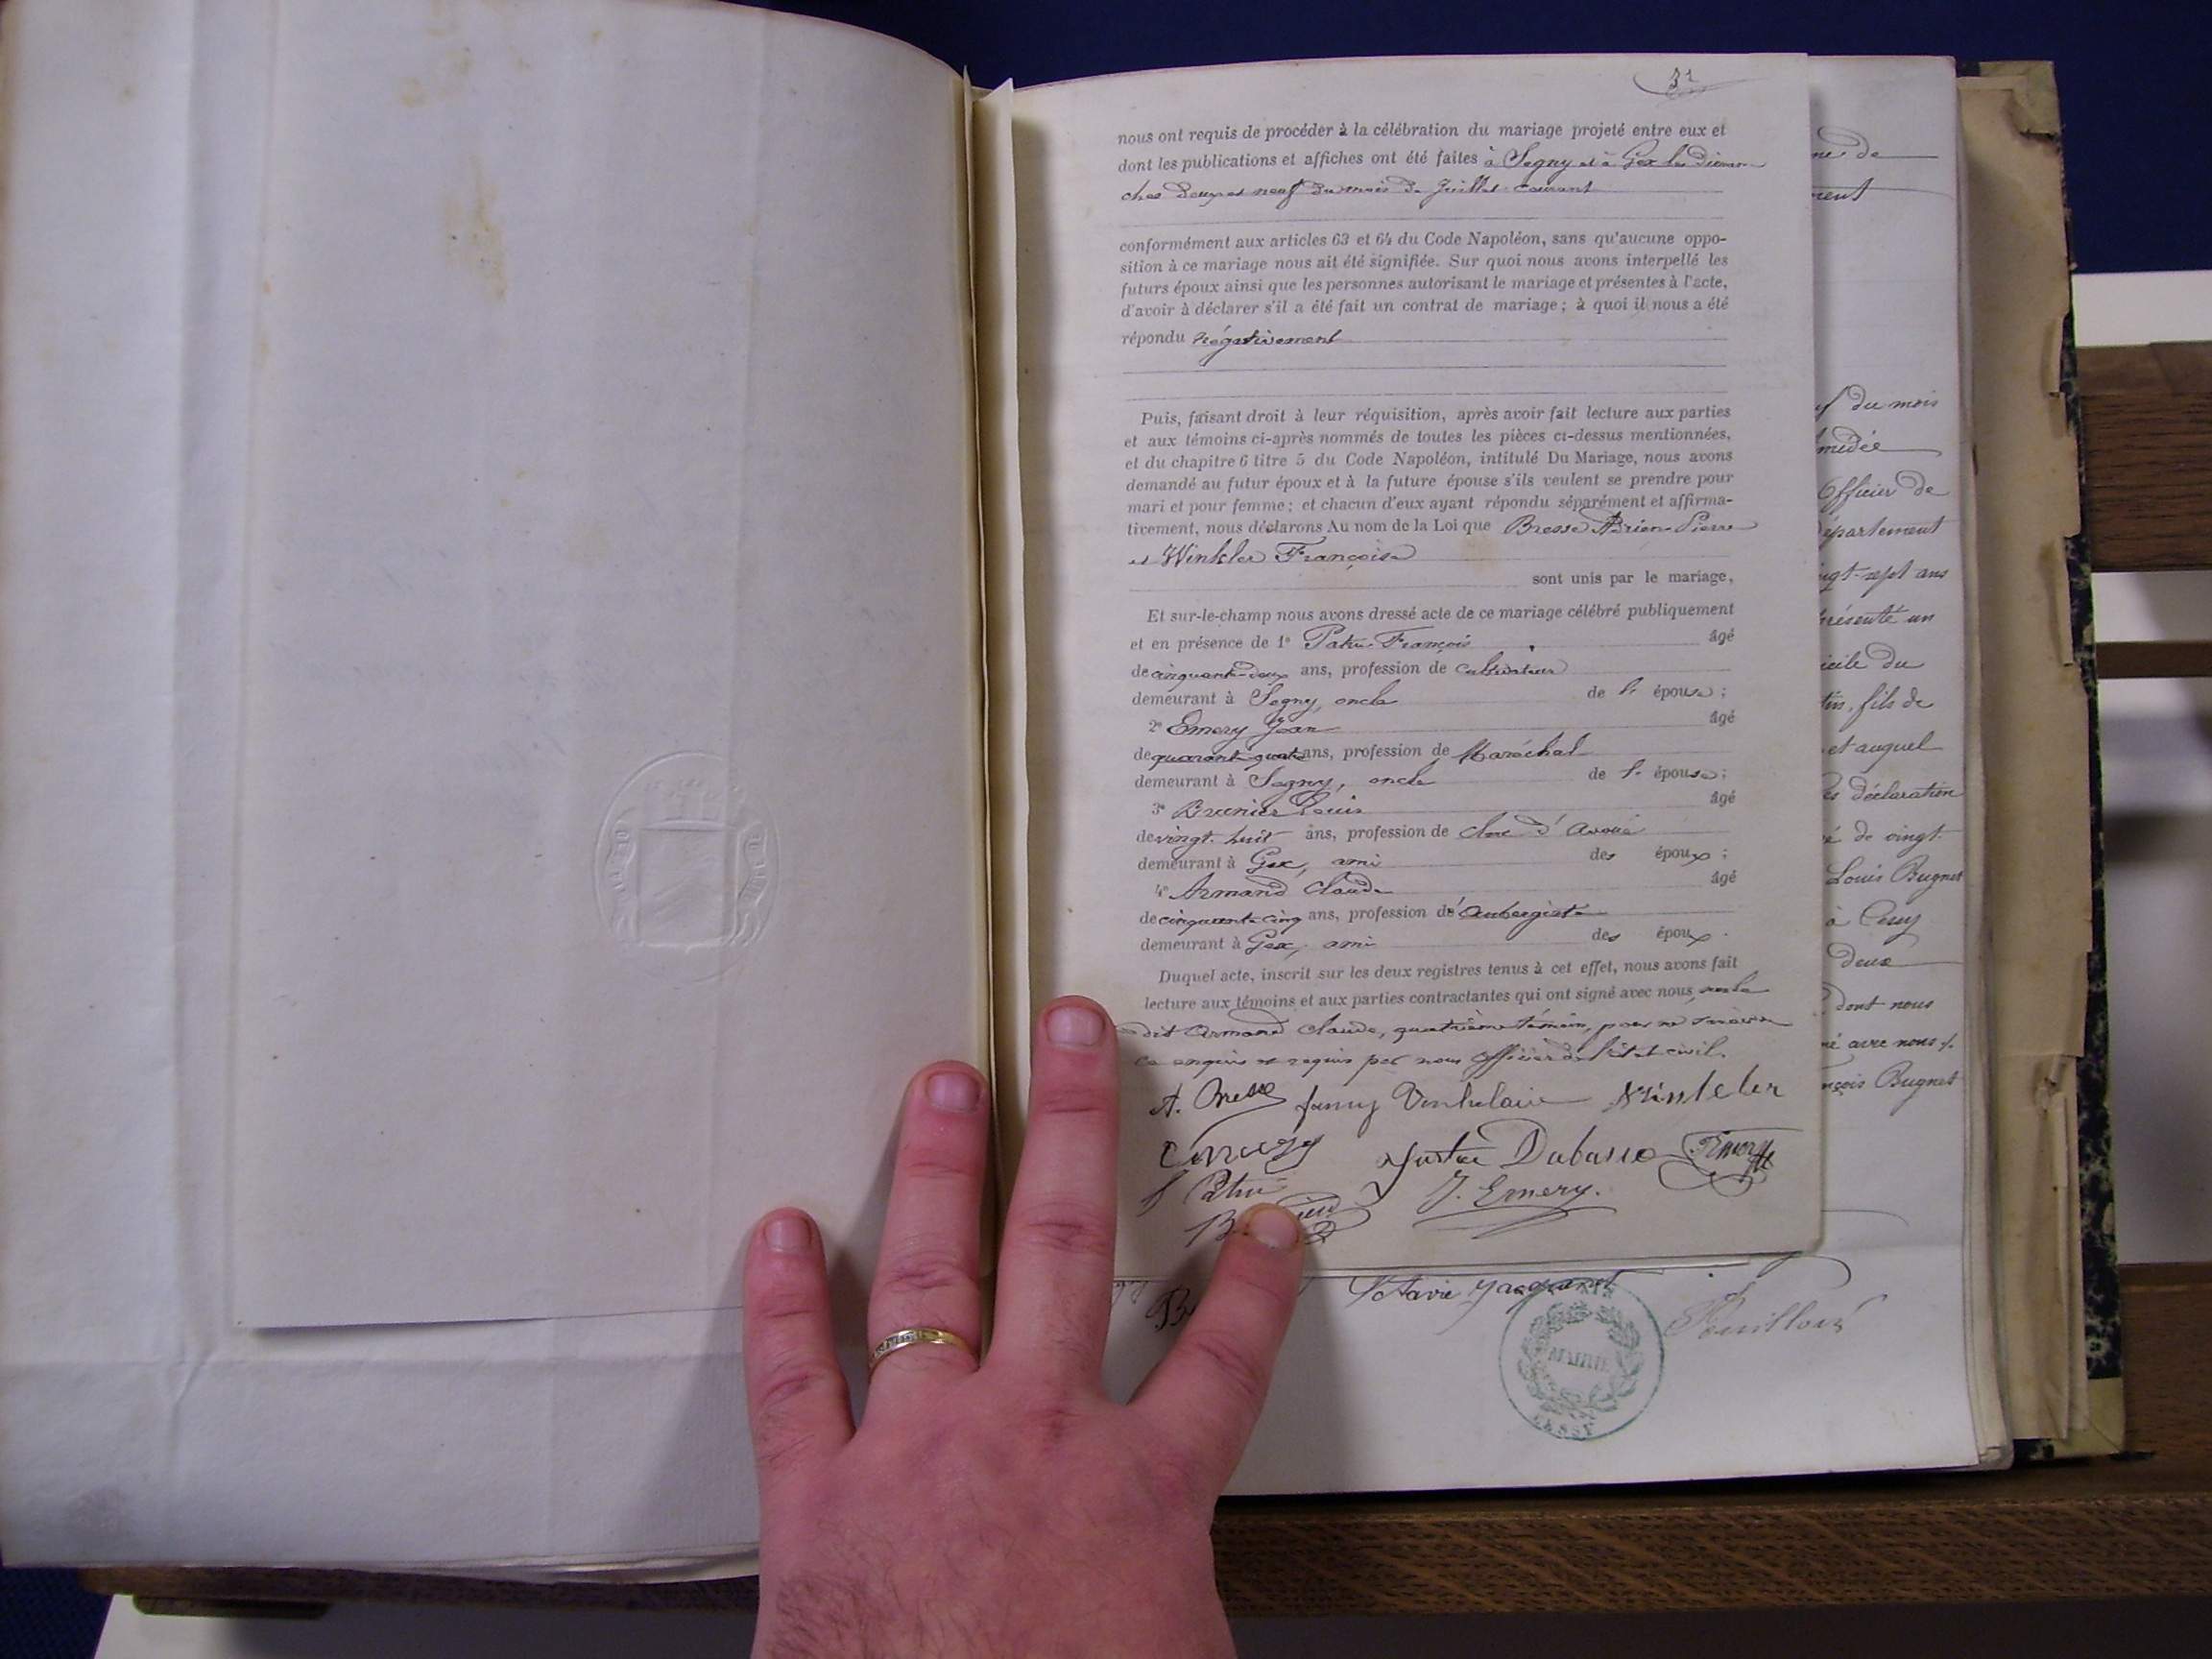 31
nous ont requis de procéder à la célébration du mariage projeté entre eux et
dont les publications et affiches ont été faites à Segny et à Gex les diman-
ches deux et neuf du mois de Juillet courant
conformément aux articles 63 et 64 du Code Napoléon, sans qu'aucune oppo-
sition à ce mariage nous ait été signifiée. Sur quoi nous avons interpellé les
futurs époux ainsi que les personnes autorisant le mariage et présentes à l'acte,
d'avoir à déclarer s'il a été fait un contrat de mariage ; à quoi il nous a été
répondu négativement
Puis, faisant droit à leur réquisition, après avoir fait lecture aux parties
et aux témoins ci-après nommés de toutes les pièces ci-dessus mentionnées,
et du chapitre 6 titre 5 du Code Napoléon, intitulé Du Mariage, nous avons
demandé au futur époux et à la future épouse s'ils veulent se prendre pour
mari et pour femme ; et chacun d'eux ayant répondu séparément et affirma-
tivement, nous déclarons Au nom de la Loi que Bresse Adrien Pierre
et Winkler Françoise
sont unis par le mariage,
Et sur-le-champ nous avons dressé acte de ce mariage célébré publiquement
et en présence de 1° Patru François âgé
de cinquante-deux ans, profession de cultivateur
demeurant à Segny, oncle de l' épouse ;
2° Emery Jean âgé
de quarante quatre ans, profession de Maréchal
demeurant à Segny, oncle de l' épouse ;
3° Brunier Louis âgé
de vingt-huit ans, profession de clerc d'avoué
demeurant à Gex, ami des époux ;
4° Armand Claude âgé
de cinquante cinq ans, profession d'Aubergiste
demeurant à Gex, ami des époux.
Duquel acte, inscrit sur les deux registres tenus à cet effet, nous avons fait
lecture aux témoins et aux parties contractantes qui ont signé avec nous,
dit Armand Claude, quatrième témoin, pour ne savoir
ce enquis et requis par nous officier de l'état civil.
A. Bresse fanny Winkler
Justin Emery
f Patru J. Emery.
ne de
ment
du mois
médée
Officier de
épartement
ingt-sept ans
présenté un
icile du
tin, fils de
et auquel
déclaration
é de vingt-
Louis Bugnet
à Cessy
deux
dont nous
né avec nous ./.
nçois Bugnet
Octavie
MAIRIE